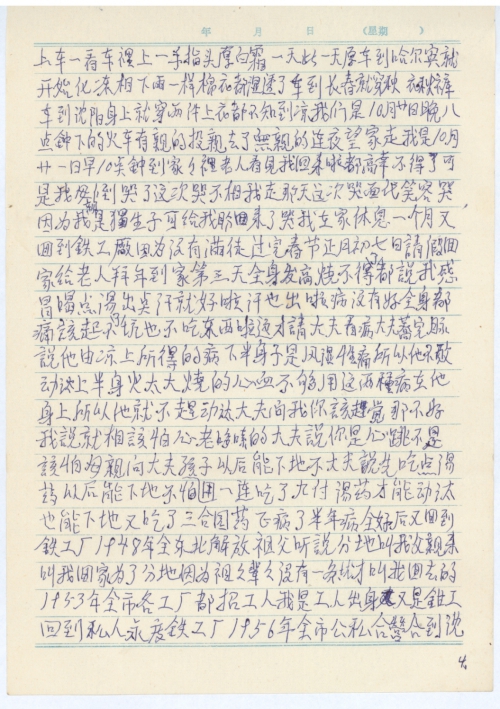 年 月 日 (星期 )
上车一看车裡上一手指头厚白霜一天此一天原车到哈尔宾就
开始化冻相下雨一样棉衣都湿透了车到长春就穿秧
车到沈阳身上就穿两件上衣都不知到凉我们是10月廿日晚八
点钟下的火车有親的投親去了無親的连夜望家走我是10月
廿一日早10点钟到家乡裡老人看見我回来啦都高幸不得了可
是我母親到哭了这次哭不相我走那天这次哭面代笑容哭
因为我是獨生子可给我盼回来了哭我在家休息一个月又
回到鉄工廠因为没有满徒过完春节正月初七日請假回
家给老人拜年到家第三天全身发高烧不得了都説我感
冒喝点湯出点汗就好啦汗也出啦病没有好全身都
痛該起不了炕也不吃东西啦这才請大夫看病大夫
説他由凉上所得的病下半身子是风湿性痛所以他不敢
动汰上半身火太大燒的心血不够用这两種病在他
身上所以他就不起动汰大夫问我你該觉那不好
我説就相該怕心老哆嗦的大夫説你是心跳不是
該怕母親问大夫孩子以后能下地不大夫説先吃点湯
药以后能下地不怕一连吃了九付湯药才能动汰
也能下地又吃了三合园药正病了半年病全好后又回到
鉄工厂1948年全东北解放祖父听説分地叫我父親来
叫我回家为了分地因为祖父辈父没有一条垅才叫我回去的
1953年全市各工厂都招工人我是工人出身又是鉗工
回到私人永度鉄工厂1956年全市公私合營合到沈
4